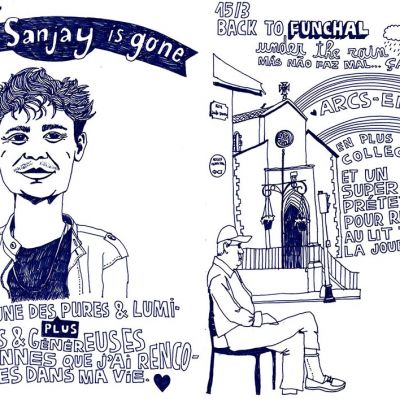 Sanjay is gone
UNE DES PURES & LUMI-
PLUS
S & GÉNÉREUSES
NNES QUE J'AI RENCO-
ES DANS MA VIE.
15/3
BACK TO FUNCHAL
under the rain
MAS NÃO FAZ MAL... ÇA
ARCS-EN
EN PLUS
COLLEC
ET UN
SUPER
PRÉTE
POUR R
AU LIT
LA JOU